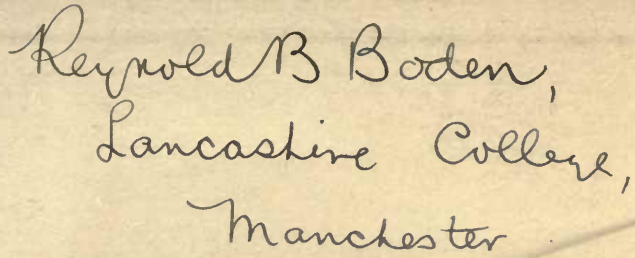 Reynold B Boden,
Lancashire College,
Manchester